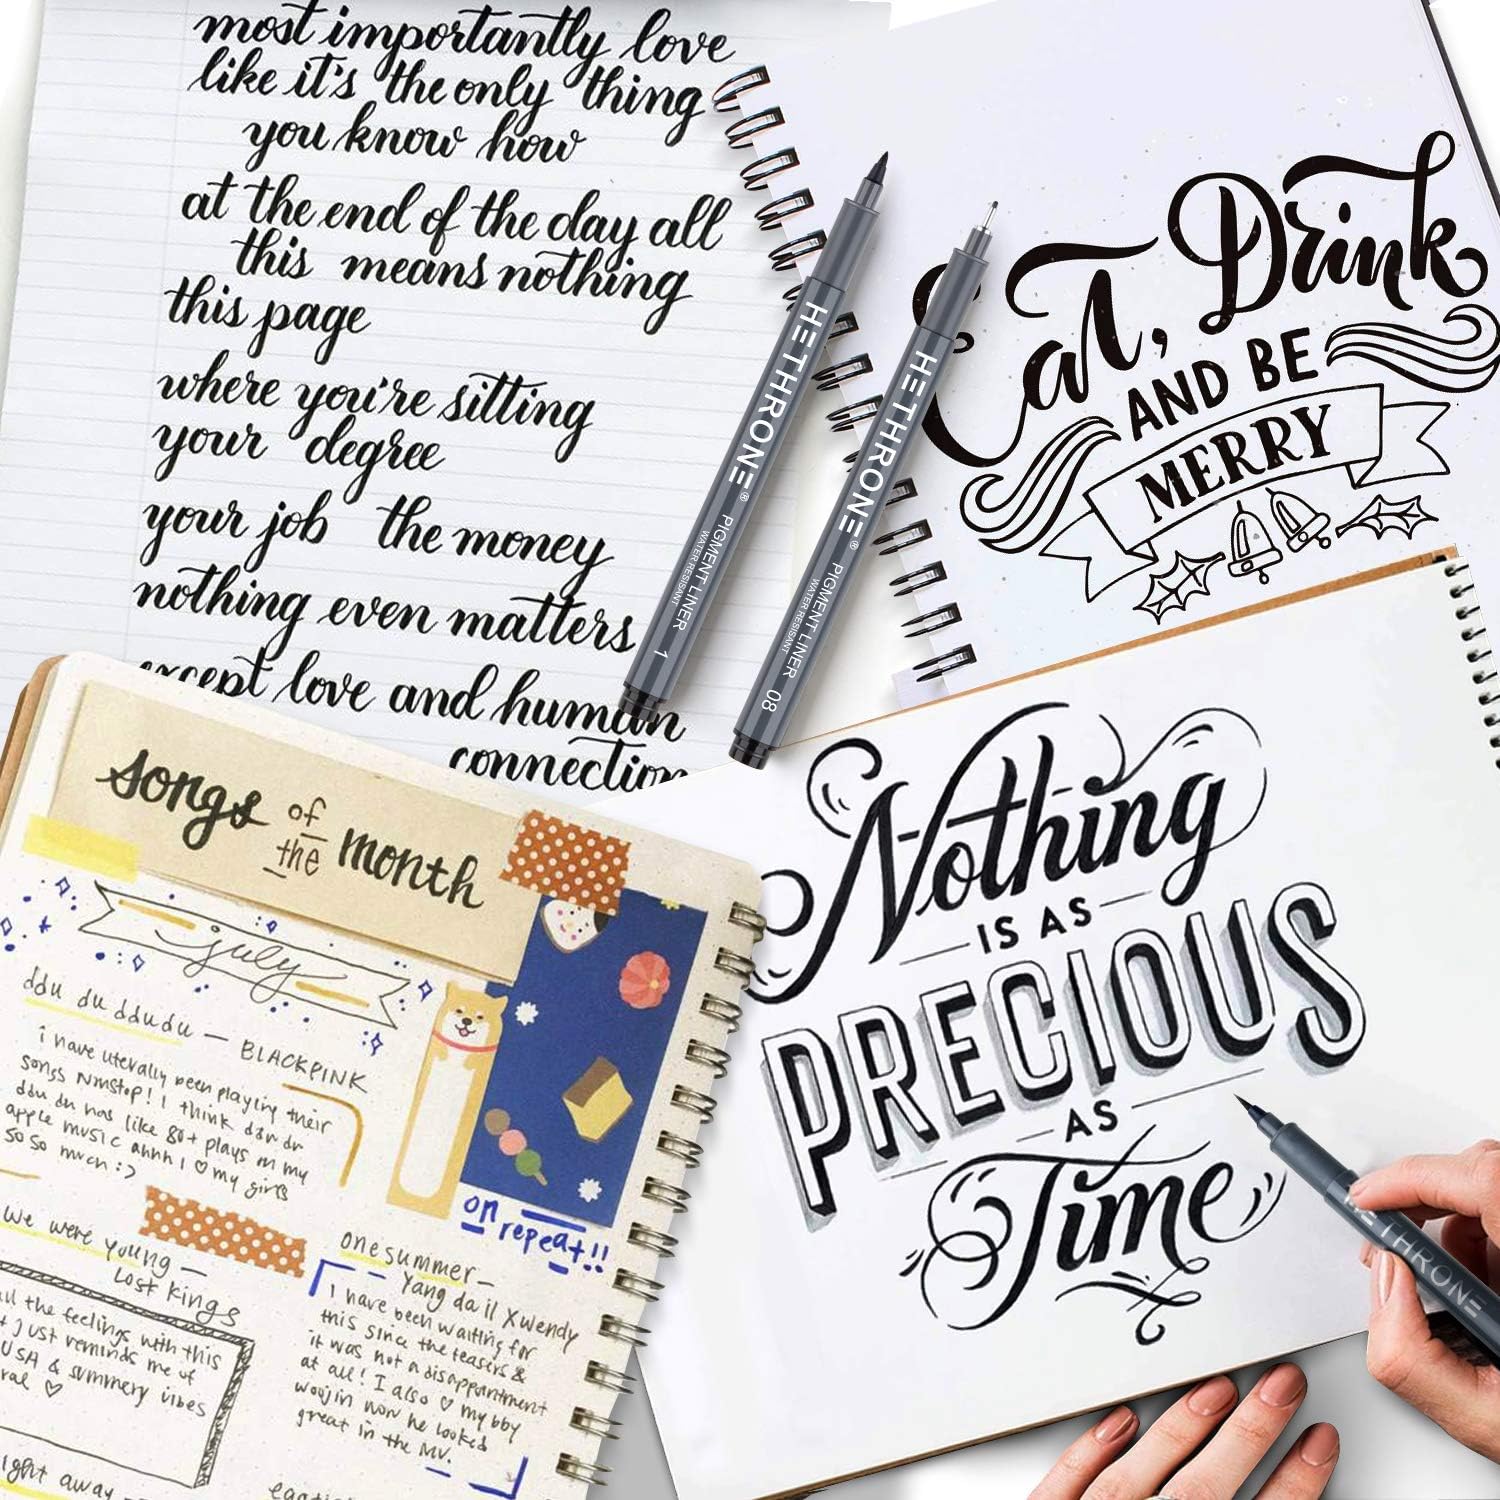 most importantly love
like it's the only thing
you know how
at the end of the day all
this means nothing
this page
where you're sitting
your degree
your job the money
nothing even matters
except love and human
connection
HETHRONE® PIGMENT LINER
WATER RESISANT
1
HETHRONE® PIGMENT LINER
WATER RESISANT
08
Eat, Drink
AND BE
MERRY
songs of the month
july
ddu du ddudu – BLACKPINK
i have literally been playing their
songs nonstop! I think ddu du
ddu du has like 80+ plays on my
apple music ahhh I ♡ my girls
so so much :)
we were young –
Lost Kings
all the feelings with this
just reminds me of
USA & summery vibes
♡
ight away –
on repeat!!
one summer –
Yang da il X wendy
I have been waiting for
this since the teasers &
it was not a disappointment
at all! I also ♡ my bby
woojin wow he looked
great in the MV.
Nothing
IS AS
PRECIOUS
AS
Time
HETHRONE